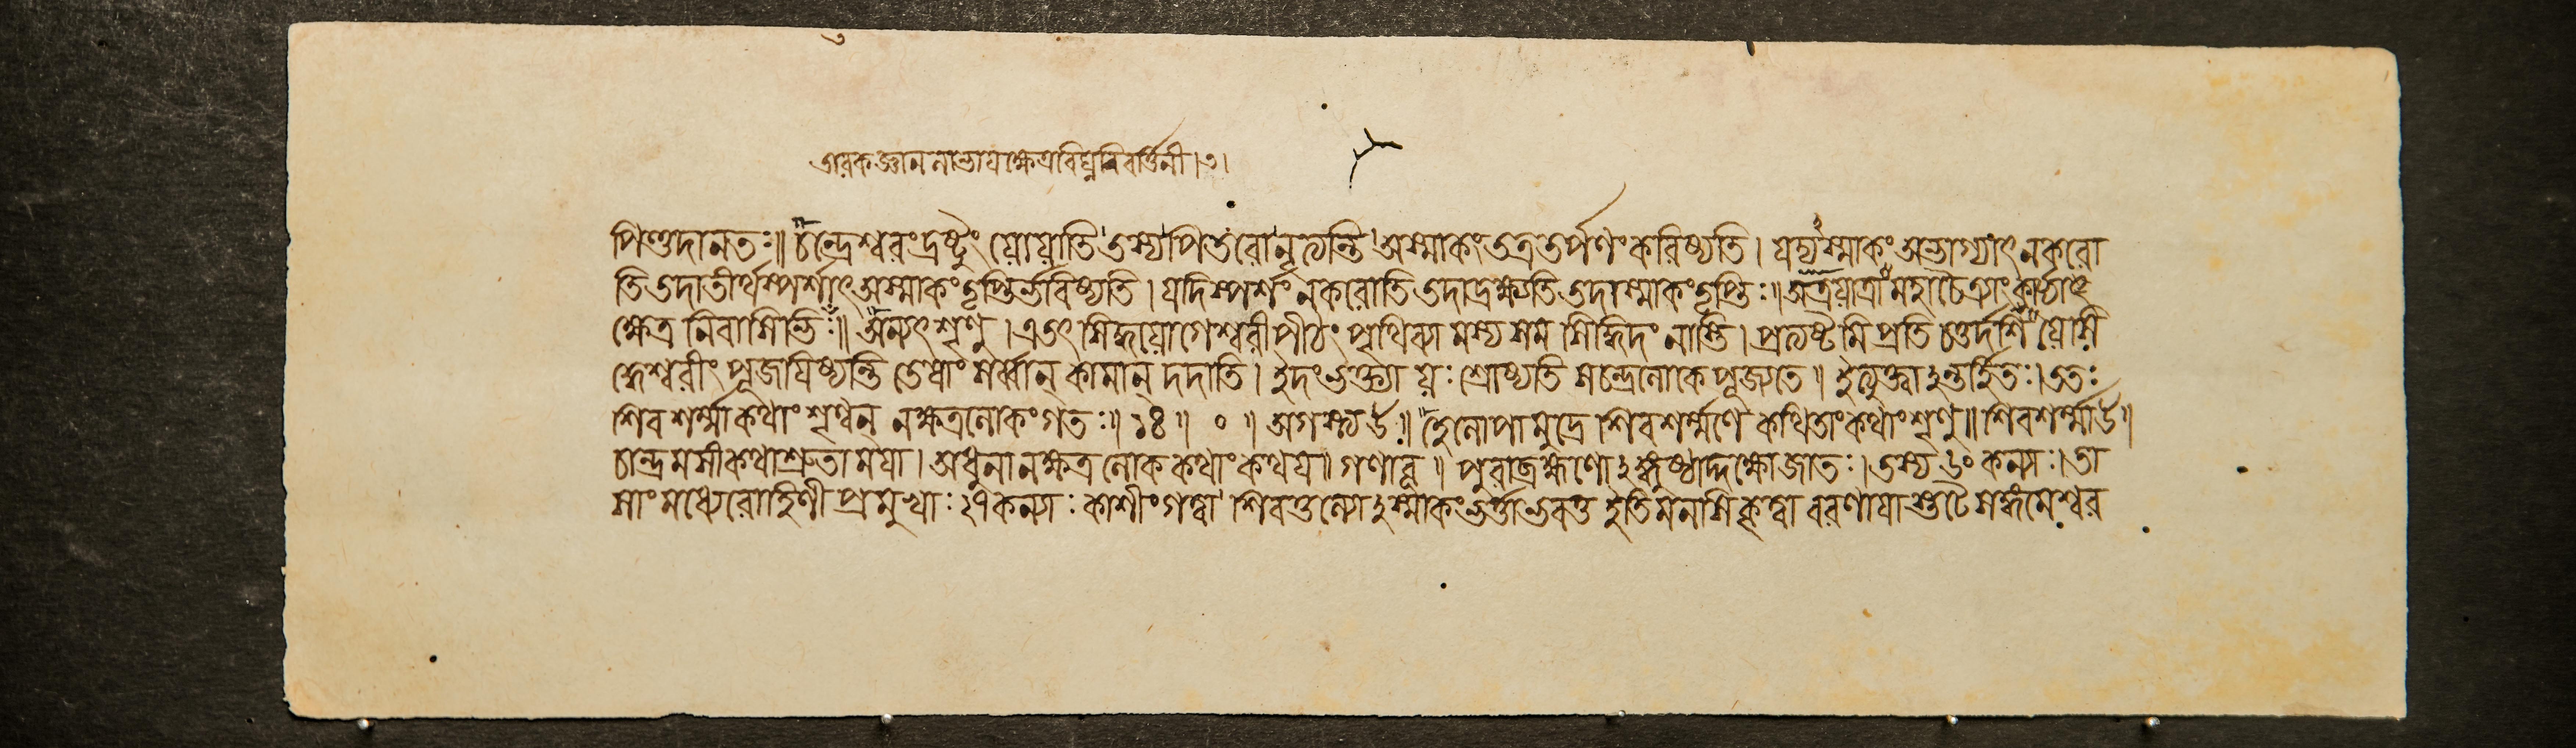 তারকজ্ঞাননাভায়ক্ষেত্রবিঘ্ননিবর্ত্তিনী।৩।
পিণ্ডদানতঃ॥ চন্দ্রেশ্বরংদ্রষ্টুং যোযাতি তস্যপিতরোনৃত্যন্তি অস্মাকংতত্রতর্পণংকরিষ্যতি। যদ্যস্মাকংঅভাগ্যাৎনকরো
তিতদাতীর্থস্পর্শাৎঅস্মাকংতৃপ্তির্ভবিষ্যতি। যদিস্পর্শংনকরোতিতদাদ্রক্ষ্যতিতদাস্মাকংতৃপ্তিঃ॥অত্রযাত্রামহাচৈত্র্যাংকার্য্যা
ক্ষেত্র নিবাসিভিঃ॥ অন্যৎশৃণু। এতৎ সিদ্ধযোগেশ্বরীপীঠং পৃথিব্যামস্যসমং সিদ্ধিদং নাস্তি। প্রত্যষ্টমি প্রতিচতুর্দশি যেসি
দ্ধেশ্বরীং পূজাযিষ্যন্তি তেষাং সর্ব্বান্ কামান্ দদাতি। ইদংভক্ত্যা যঃ শ্রোষ্যতি সচন্দ্রলোকে পূজ্যতে॥ ইত্যুক্ত্বাঽন্তর্হিতঃ।ততঃ
শিবশর্ম্মাকথাংশৃণ্বন্ নক্ষত্রলোকংগতঃ॥১৪॥ ০ ॥ অগস্ত্যউ॥ হেলোপামুদ্রে শিবশর্ম্মণে কথিতাংকথাংশৃণু॥ শিবশর্ম্মাউ॥
চান্দ্রমসীকথাশ্রুতাময়া। অধুনানক্ষত্রলোককথাংকথয়॥ গণাবূ॥ পুরাব্রহ্মণোঽঙ্গুষ্ঠাদ্দক্ষোজাতঃ। তস্য ৬০ কন্যাঃ। তা
সাংমধ্যেরোহিণী প্রমুখাঃ ২৭কন্যাঃ কাশীংগত্বা শিবতুল্যোঽস্মাকংভর্ত্তাভবতু ইতিমনসিকৃত্বা বরণাযাস্তটে সঙ্গমেশ্বর